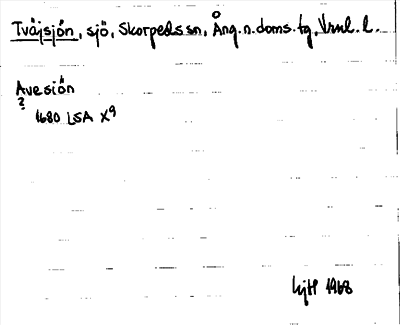 Tvåjsjón, sjö, Skorpeds sn, Ång. n. doms. tg, Vrnl. l.
Avesión
?
1680 LSA X9
1968